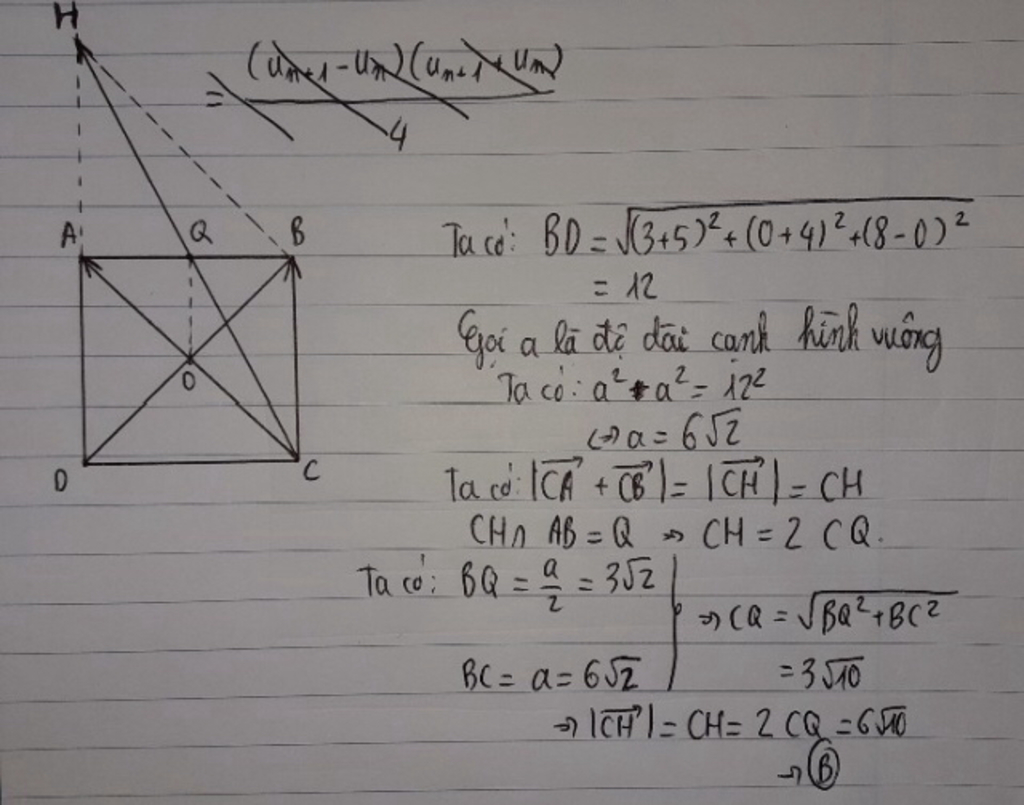 H
= (uₙ₊₁ - uₙ)(uₙ₊₁ + uₙ) / 4
A Q B
O
D C
Ta có: BD = √((3+5)² + (0+4)² + (8-0)²)
= 12
Gọi a là độ dài cạnh hình vuông
Ta có: a² + a² = 12²
⇔ a = 6√2
Ta có: |CA→ + CB→| = |CH→| = CH
CH ∩ AB = Q ⇒ CH = 2 CQ.
Ta có: BQ = a/2 = 3√2
⇒ CQ = √(BQ² + BC²)
BC = a = 6√2
= 3√10
⇒ |CH→| = CH = 2 CQ = 6√10
→ B